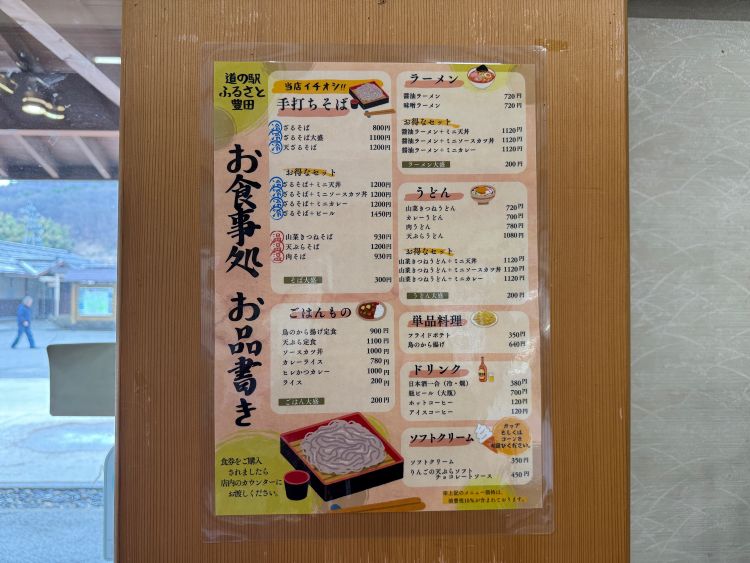 道の駅
ふるさと
豊田
お食事処、お品書き
当店イチオシ!!
手打ちそば
冷 ざるそば 800円
冷 ざるそば大盛 1100円
冷 天ざるそば 1200円
お得なセット
冷 ざるそば+ミニ天丼 1200円
冷 ざるそば+ミニソースカツ丼 1200円
冷 ざるそば+ミニカレー 1200円
冷 ざるそば+ビール 1450円
温 山菜きつねそば 930円
温 天ぷらそば 1200円
温 肉そば 930円
そば大盛 300円
ごはんもの
鳥のから揚げ定食 900円
天ぷら定食 1100円
ソースカツ丼 1000円
カレーライス 780円
ヒレかつカレー 1000円
ライス 200円
ごはん大盛 200円
ラーメン
醤油ラーメン 720円
味噌ラーメン 720円
お得なセット
醤油ラーメン+ミニ天丼 1120円
醤油ラーメン+ミニソースカツ丼 1120円
醤油ラーメン+ミニカレー 1120円
ラーメン大盛 200円
うどん
山菜きつねうどん 720円
カレーうどん 700円
肉うどん 780円
天ぷらうどん 1080円
お得なセット
山菜きつねうどん+ミニ天丼 1120円
山菜きつねうどん+ミニソースカツ丼 1120円
山菜きつねうどん+ミニカレー 1120円
うどん大盛 200円
単品料理
フライドポテト 350円
鳥のから揚げ 640円
ドリンク
日本酒一合(冷・燗) 380円
瓶ビール(大瓶) 700円
ホットコーヒー 120円
アイスコーヒー 120円
ソフトクリーム
カップ
もしくは
コーンを
お選びください。
ソフトクリーム 350円
りんごの天ぷらソフト
チョコレートソース 450円
※上記のメニュー価格は、
消費税10%が含まれております。
食券をご購入
されましたら
店内のカウンターに
お渡しください。